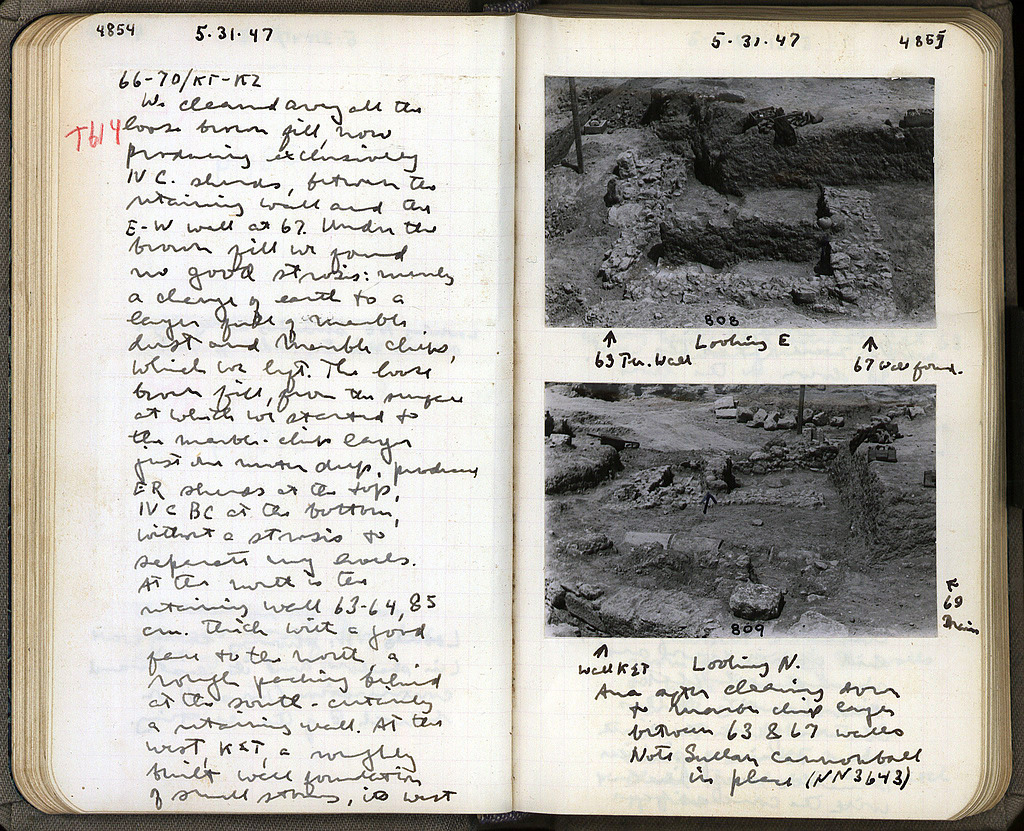 4854
5.31.47
66-70/KT-KZ
We cleared away all the
T614
loose brown fill, now
producing exclusively
IV C. sherds, between the
retaining wall and the
E-W wall at 67. Under the
brown fill we found
no good strosis: merely
a change of earth to a
layer full of marble
dust and marble chips,
which we left. The loose
brown fill, from the surface
at which we started to
the marble-chips layer
just one meter deep, produced
ER sherds at the top,
IV c BC at the bottom,
without a strosis to
separate any levels.
At the north is the
retaining wall 63-64, 85
cm. thick with a good
face to the north, a
rough packing behind
at the south - certainly
a retaining wall. At the
west, KΣT, a roughly
built wall foundation
of small stones, its west
5.31.47
4855
808
↑ ↑
63 Wall
Looking E
67 Wall found.
809
69
Drain
Wall KΣT
Looking N.
Area after clearing down
to marble chip layer
between 63 & 67 walls
Note Sullan cannonball
in place (NN3643)